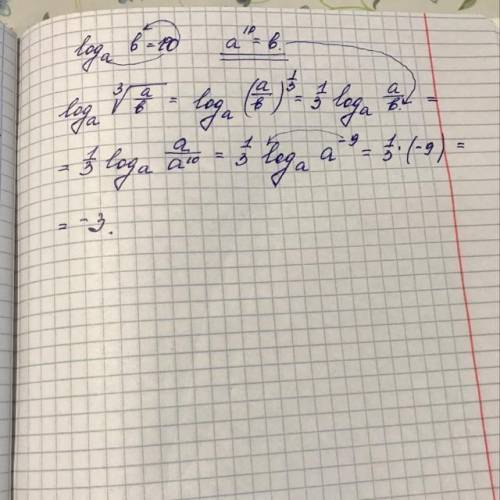 logₐ в = 10 a¹⁰ = в.
logₐ ∛(a/в) = logₐ (a/в)^(1/3) = 1/3 logₐ a/в =
= 1/3 logₐ a/a¹⁰ = 1/3 logₐ a⁻⁹ = 1/3 · (-9) =
= -3.